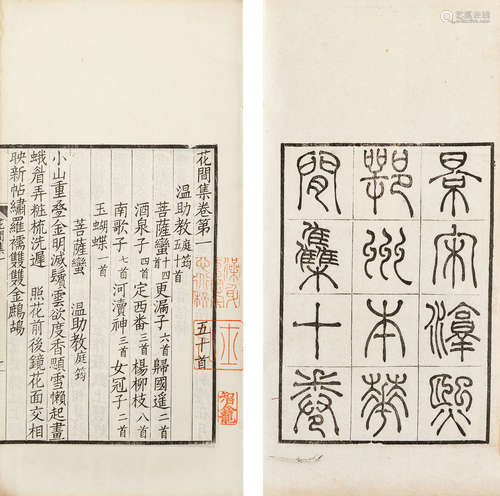 景宋淳熙
鄂州本華
閒集十卷
花間集卷第一 五十首
溫助教庭筠五十首
菩薩蠻十四首 更漏子六首 歸國遙二首
酒泉子四首 定西番三首 楊柳枝八首
南歌子七首 河瀆神三首 女冠子二首
玉蝴蝶一首
菩薩蠻 溫助教庭筠
小山重疊金明滅鬢雲欲度香顋雪懶起畫
蛾眉弄粧梳洗遲 照花前後鏡花面交相
映新帖繡羅襦雙雙金鷓鴣